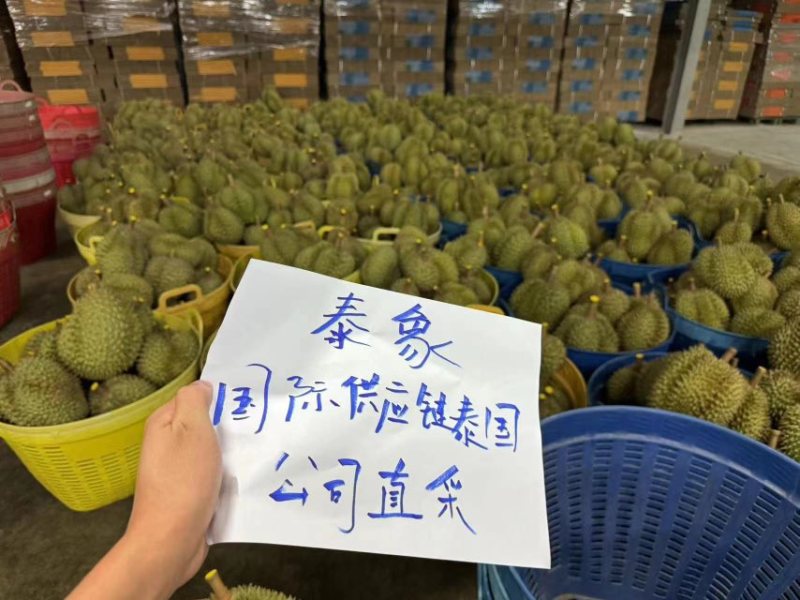 泰象
国际供应链泰国
公司直采